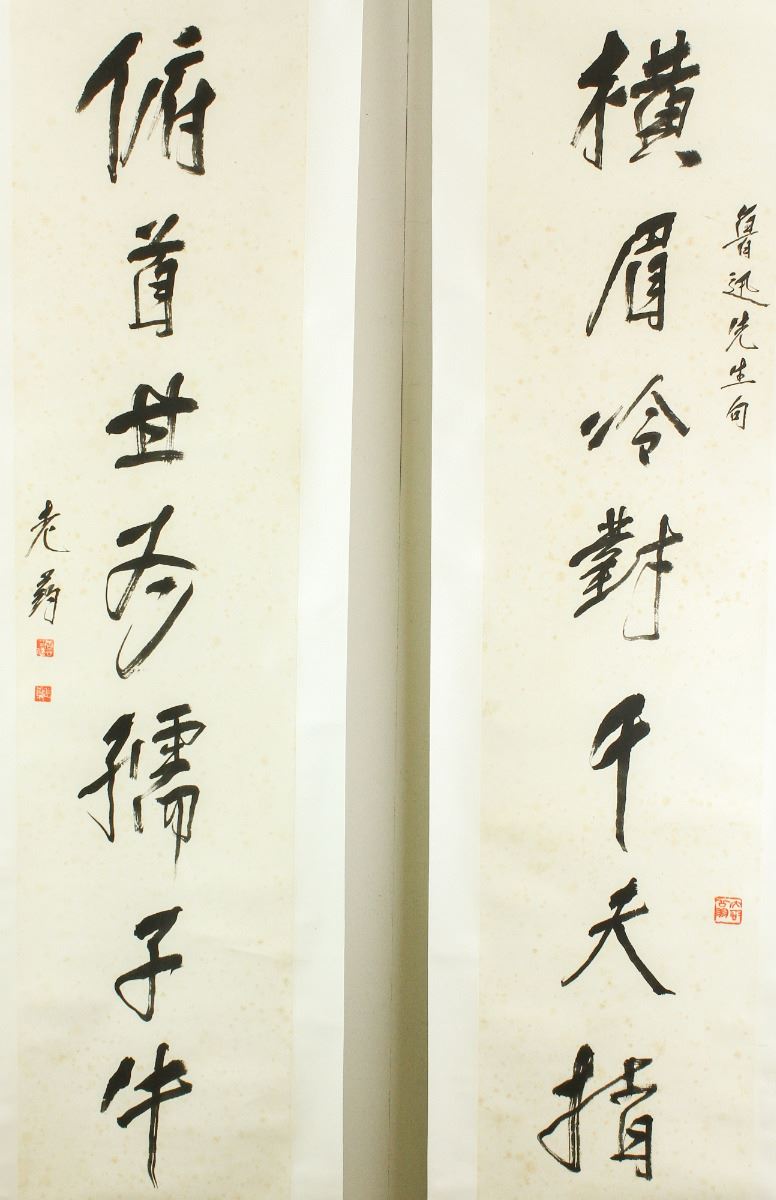 橫眉冷對千夫指
魯迅先生句
俯首甘為孺子牛
老